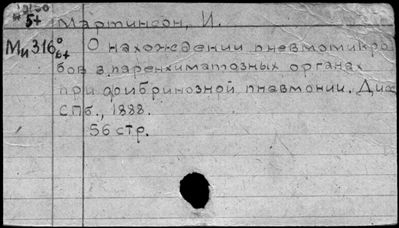 5+ Мартинсон, И.
Ми 316 О нахождении пневмомикро
6+ бов в паренхиматозных органах
при фибринозной пневмонии. Дис
СПб., 1888.
56 стр.